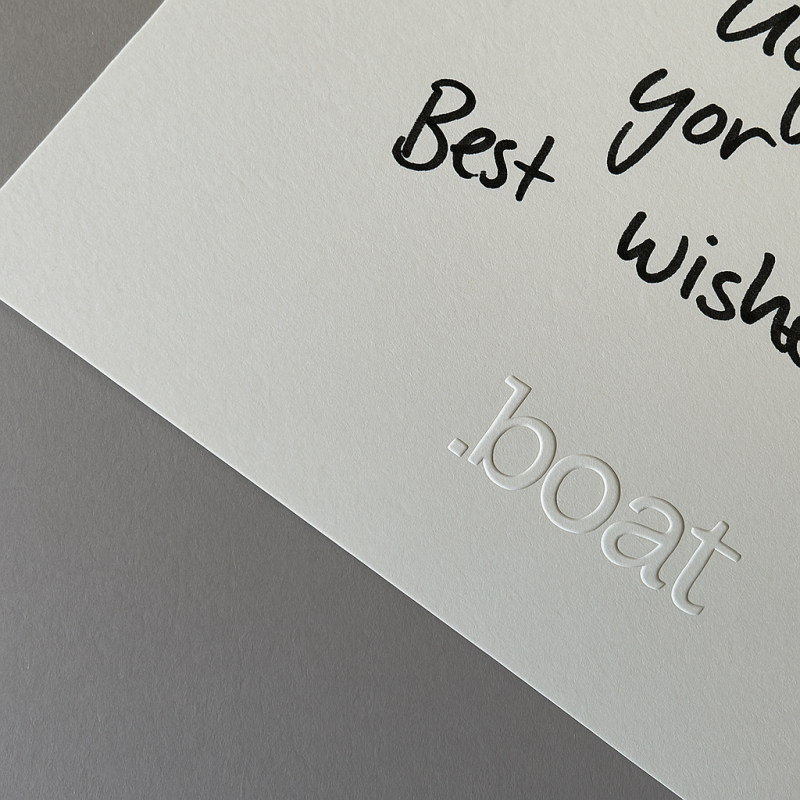 Best wishe
.boat